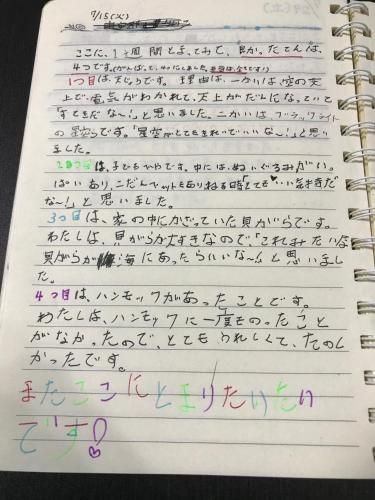 7/15(火)
ここに、1週間とまってみて、良かったてんは、
4つです。
1つ目は、天じょうです。理由は、一かいは空の天
上で、電気がわかれて、天上がだんになっていて
「すてきだな〜!」と思いました。ニかいは、ブラックライト
の星空らです。「星空がとてもきれいでいいな〜!」と思い
ました。
2つ目は、子どもべやです。中には、ぬいぐるみがい。
ぱいあり、ニだんベットもありねる時「とても♥いい気持だ
な〜!」と思いました。
3つ目は、家の中にかざっていた貝がらです。
わたしは、貝がらが大すきなので、「これみたいな
貝がらが海にあったらいいな〜!」と思いまし
た。
4つ目は、ハンモックがあったことです。
わたしは、ハンモックに一度ものったこと
がなかったので、とてもうれしくて、たのし
かったです。
またここにとまりたいたい
です!